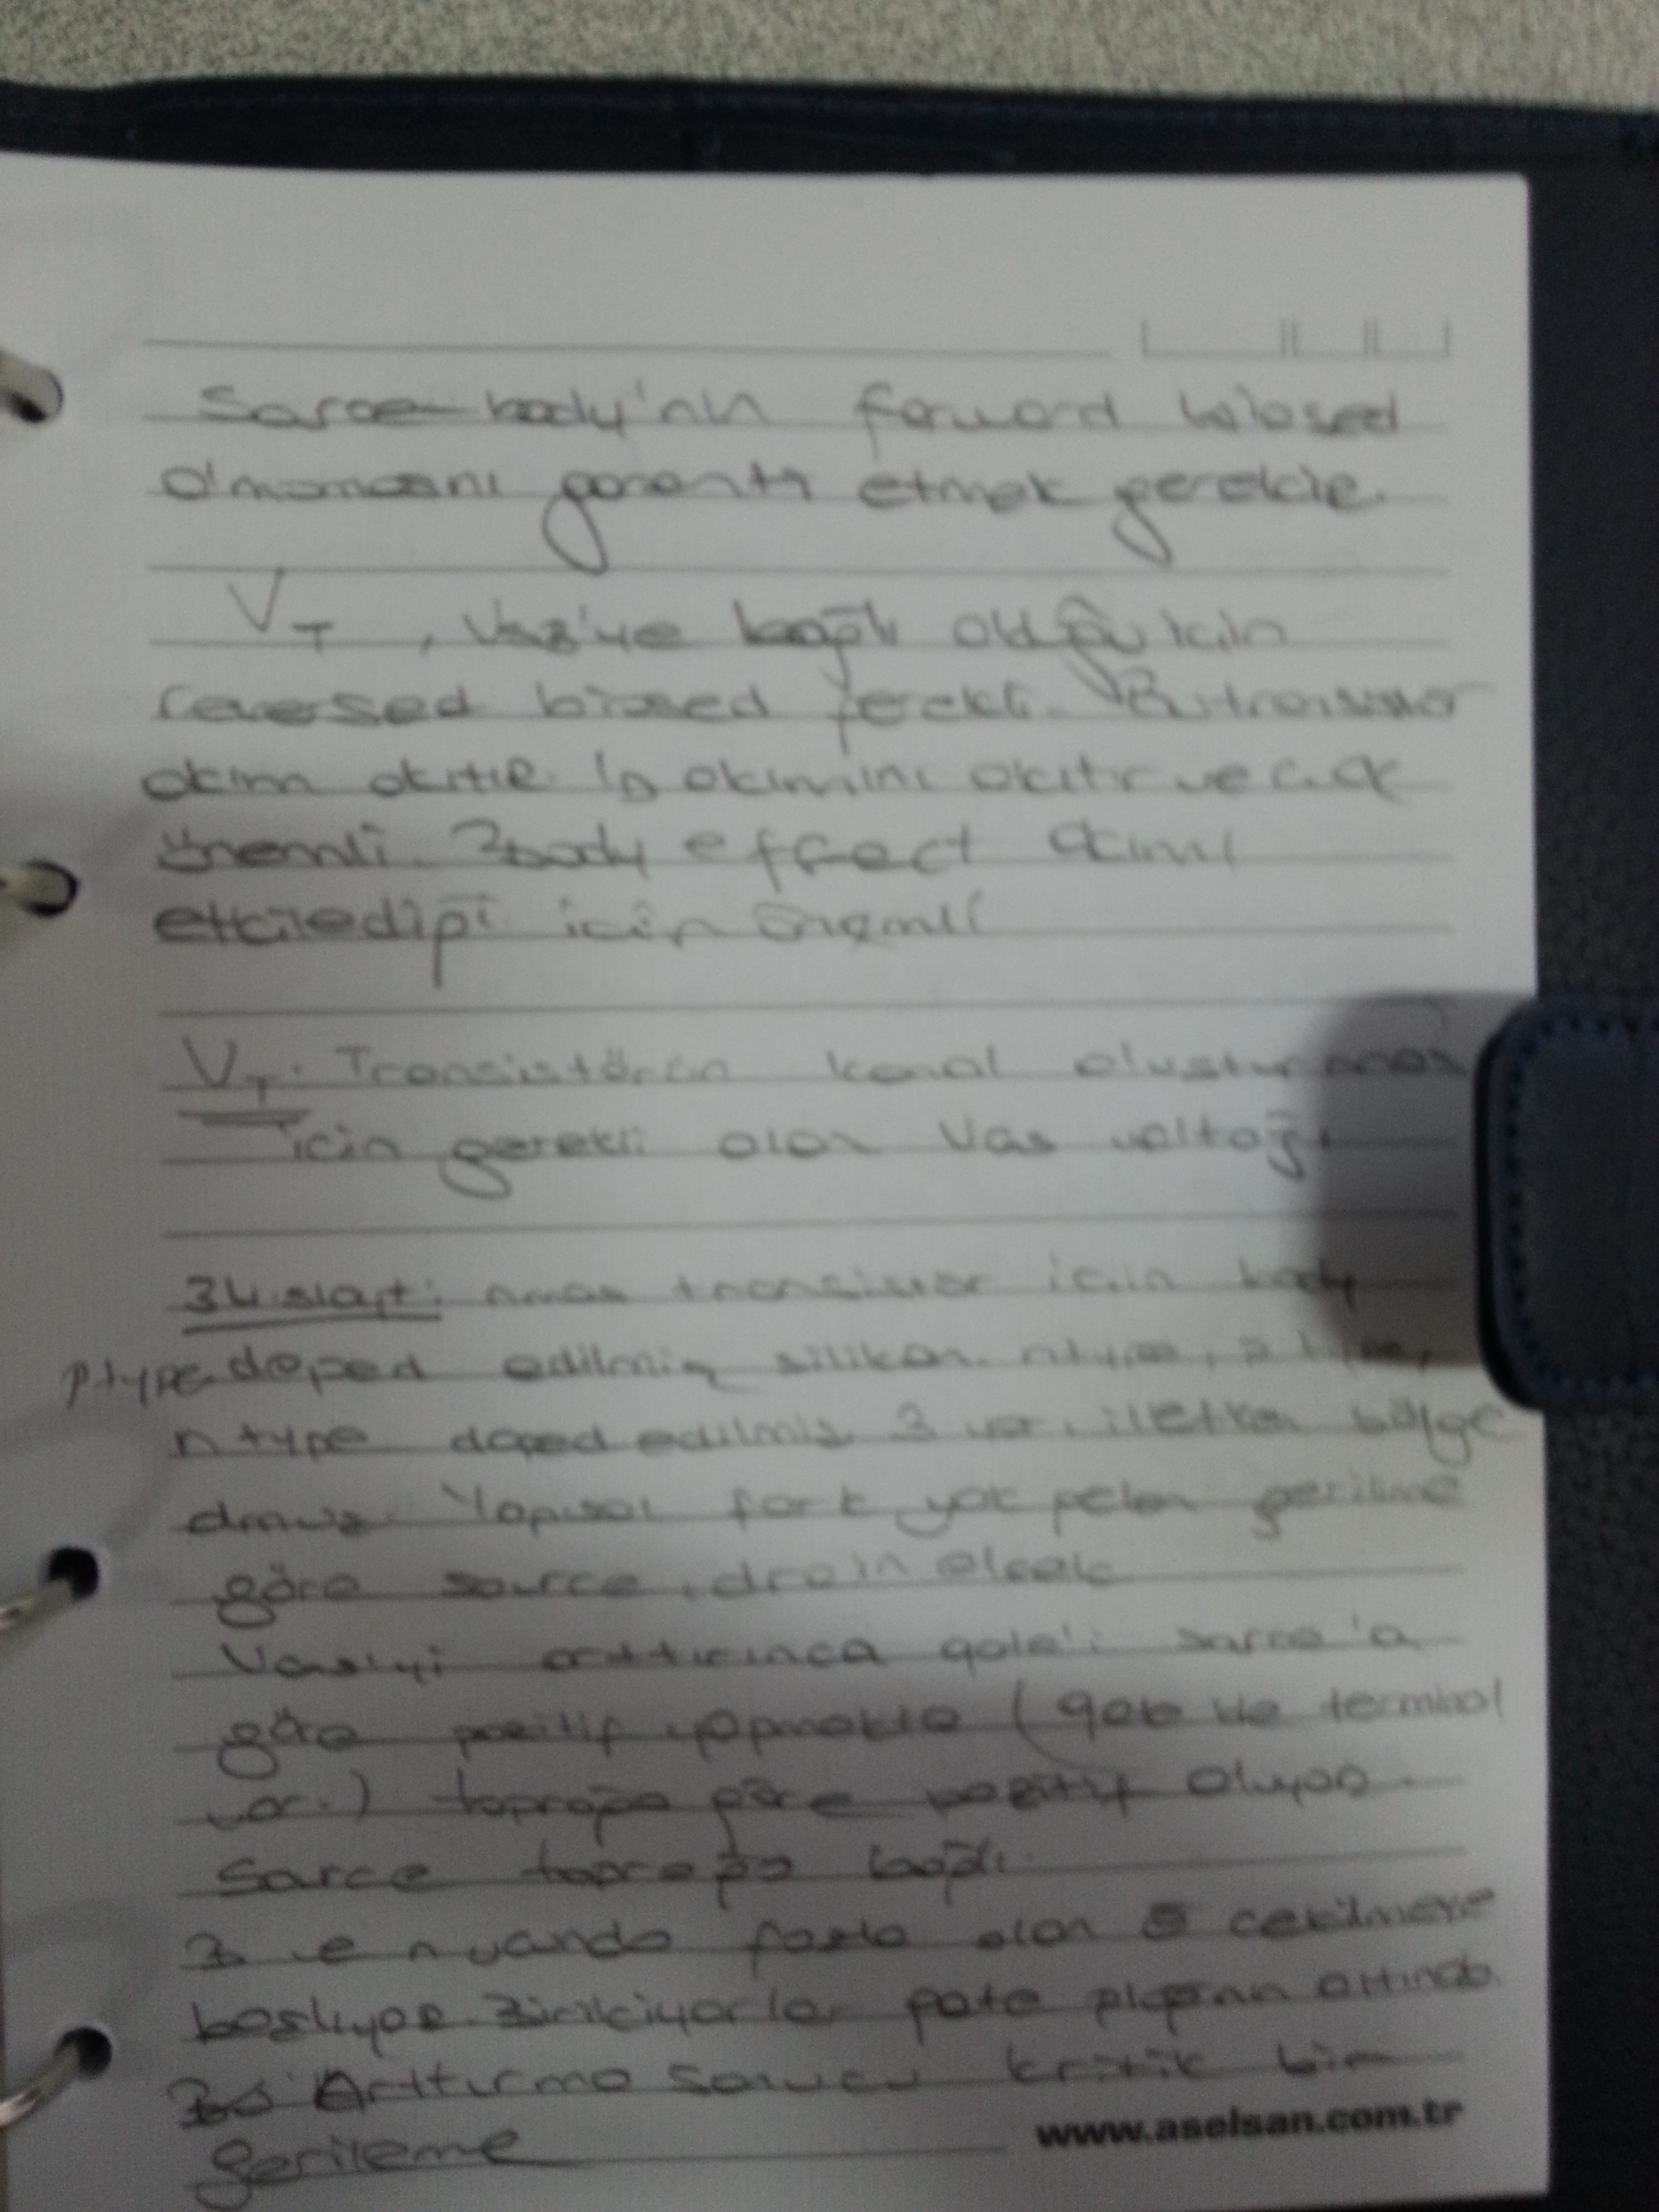 Sarce body'nin forward biased
olmamasını garanti etmek gerekir.
VT, VSB'ye bağlı olduğu için
reversed biased gerekli. Bu transistor
akım akıtır. ID akımını akıtır ve
önemli. body effect akımı
etkilediği için önemli
VT: Transistörün kanal oluşturması
için gerekli olan VGS voltajı
34.slayt: nmos transistor için body
ptype doped edilmiş silikon. ntype, p type,
n type doped edilmiş 3 yarı iletken bölge
Yapısal fark yok gelen gerilime
göre source, drain olcak
VGS'yi arttırınca gate'i sarce'a
göre pozitif yapmakta (gate de terminal
var.) toprağa göre pozitif oluyor.
Sarce toprağa bağlı.
fazla olan e çekilmeye
başlıyor. birikiyorlar gate
Arttırma sonucu kritik bir
gerileme
www.aselsan.com.tr